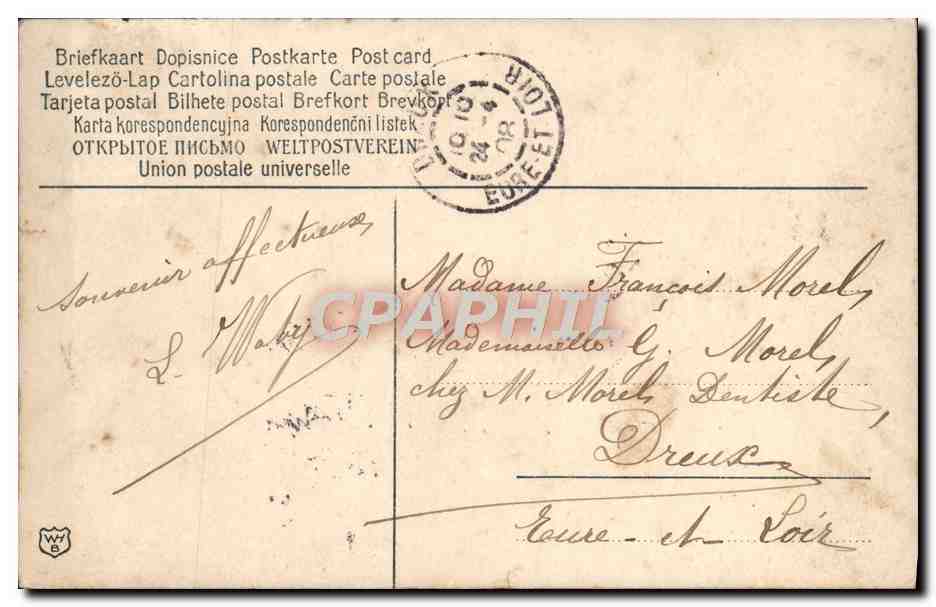 Briefkaart Dopisnice Postkarte Post card
Levelezö-Lap Cartolina postale Carte postale
Tarjeta postal Bilhete postal Brefkort Brevkort
Karta korespondencyjna Korespondenční listek
ОТКРЫТОЕ ПИСЬМО WELTPOSTVEREIN
Union postale universelle
DREUX
10 10
24 -4
08
EURE-ET-LOIR
Souvenir affectueux
L.
Madame François Morel
Mademoiselle G. Morel
chez M. Morel Dentiste,
Dreux
Eure-et-Loir
CPARPHIL
WH
B